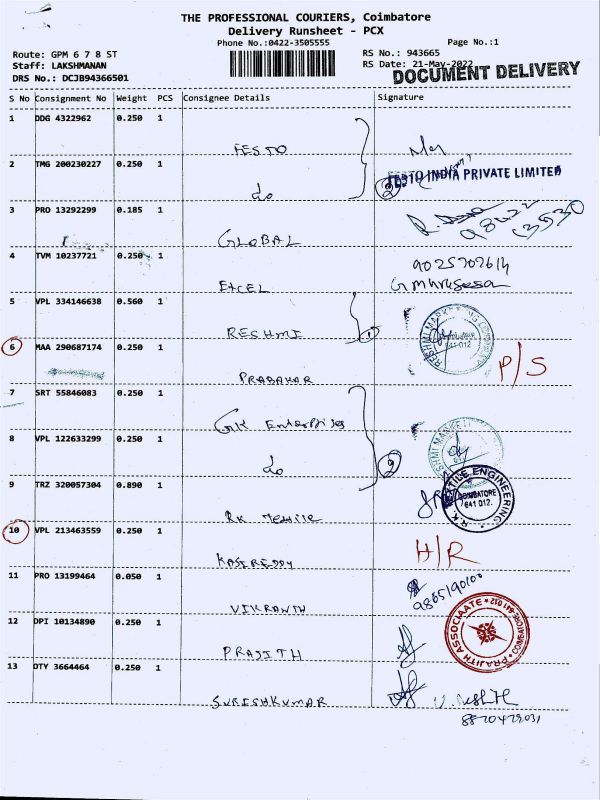 THE PROFESSIONAL COURIERS, Coimbatore
Delivery Runsheet - PCX
Phone No.:0422-3505555
Page No.:1
Route: GPM 6 7 8 ST
RS No.: 943665
Staff: LAKSHMANAN
RS Date: 21-May-2022
DRS No.: DCJB94366501
DOCUMENT DELIVERY
S No Consignment No Weight PCS Consignee Details Signature
1 DDG 4322962 0.250 1
FESTO
2 TMG 200230227 0.250 1
INDIA PRIVATE LIMITED
do 2
3 PRO 13292299 0.185 1
GLOBAL
4 TVM 10237721 0.250 1
EXCEL
5 VPL 334146638 0.560 1
RESHMI 1
RESHMI MARKETING
641 012
6 MAA 290687174 0.250 1
P/S
PRABAKAR
7 SRT 55846083 0.250 1
GK Enterprises
8 VPL 122633299 0.250 1
do 2
9 TRZ 320057304 0.890 1
RK Textile
R.K. TEXTILE ENGINEERING
COIMBATORE
641 012.
10 VPL 213463559 0.250 1
H/R
KASIREDDY
11 PRO 13199464 0.050 1
9865190100
VIKRANTH
12 DPI 10134890 0.250 1
PRAJITH ASSOCIATE COIMBATORE 641 012
PRAJITH
13 DTY 3664464 0.250 1
SURESHKUMAR